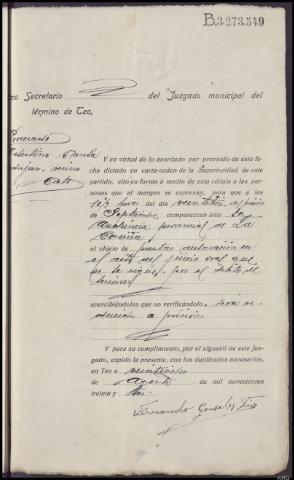 B.3.273.549
mo Secretario del Juzgado municipal del
término de Teo,
Procesado
Y en virtud de lo acordado por proveído de esta fe-
cha dictado en carta-orden de la Superioridad de este
partido, cito en forma a medio de esta cédula a las perso-
nas que al margen se expresan, para que a las
10½ horas del día veintitrés
de Septiembre, comparezcan ante La
Audiencia provincial de La
Coruña
al objeto de prestar declaración en
el acto del juicio oral que
se le sigue por el delito de
lesiones
apercibiéndoles que no verificándolo, será re-
ducido a prisión
Y para su cumplimiento, por el alguacil de este Juz-
gado, expido la presente, con los duplicados necesarios,
en Teo a
de Agosto de mil novecientos
treinta y tres.
Fernando González